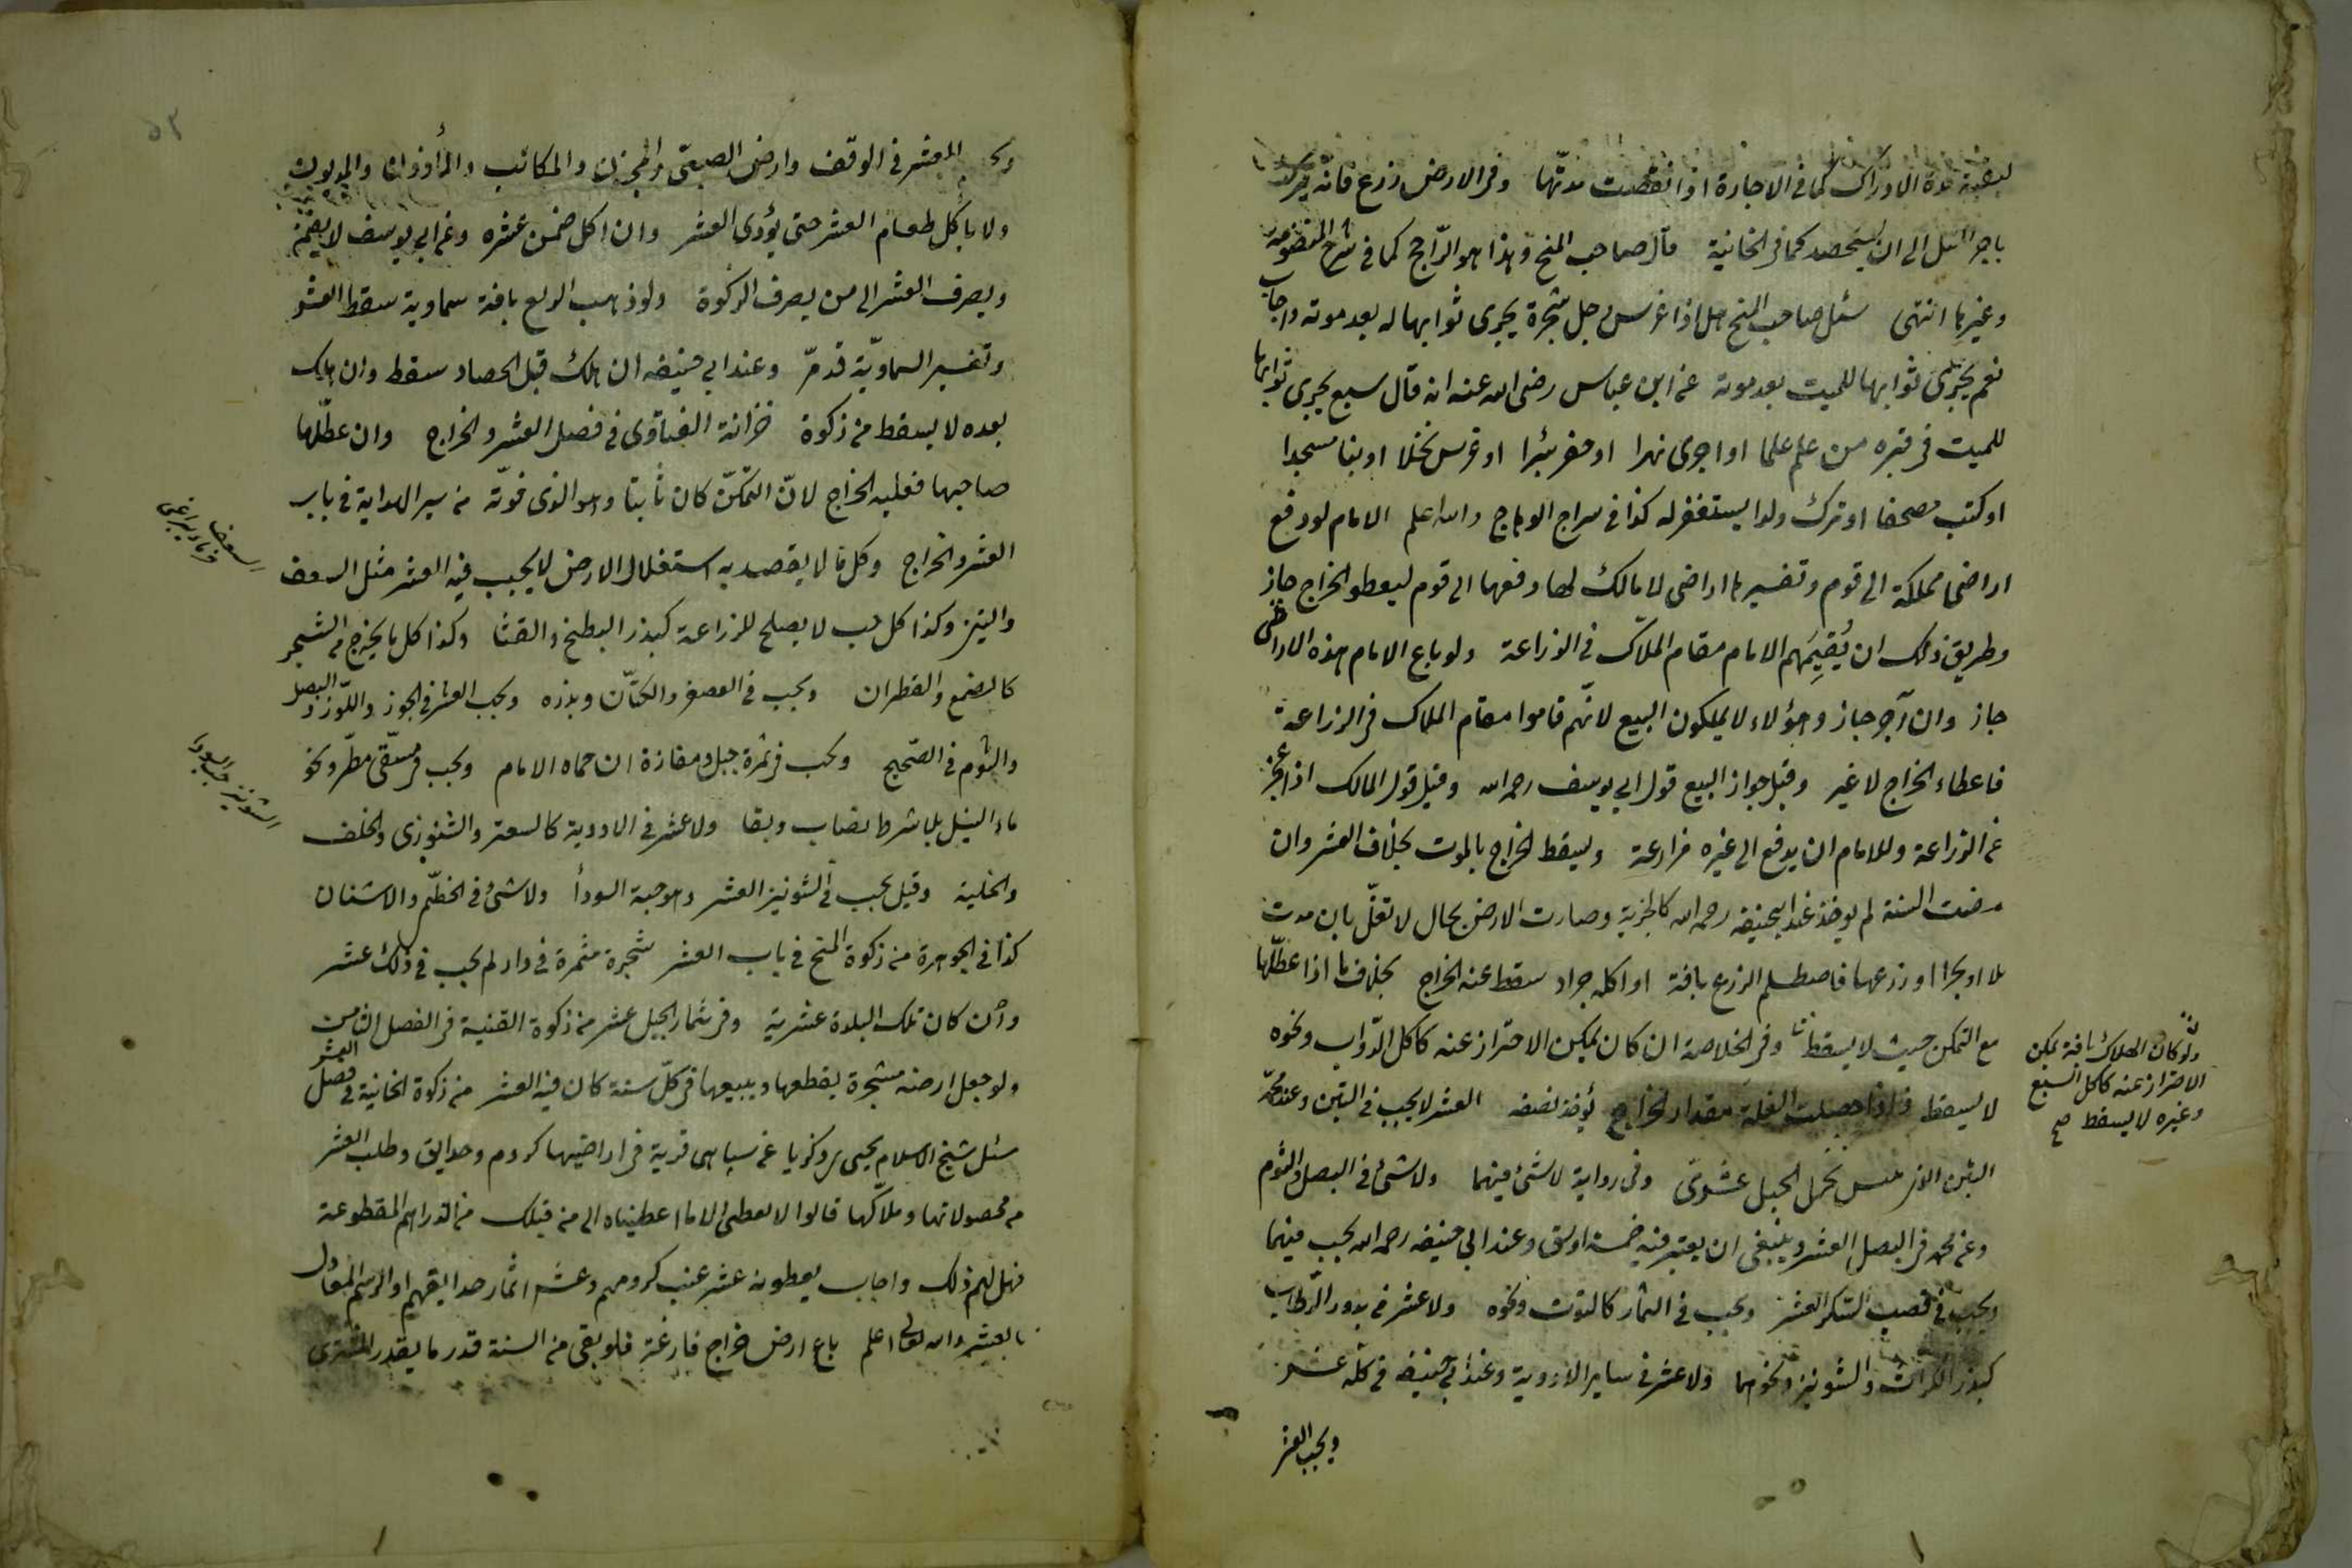 لبقية مدة الادراك كما في الاجارة اذا انقضت مدتها وفي الارض زرع فانه يترك
باجر المثل الى ان يستحصد كما في الخانية قال صاحب المنح وهذا هو الراجح كما في شرح المنظومة
وغيرها انتهى سئل صاحب المنح هل اذا غرس رجل شجرة يجرى ثوابها له بعد موته واجاب
نعم يجرى ثوابها للميت بعد موته عن ابن عباس رضى الله عنه انه قال سبع يجرى ثوابها
للميت في قبره من علم علما او اجرى نهرا او حفر بئرا او غرس نخلا او بنا مسجدا
او كتب مصحفا او ترك ولدا يستغفر له كذا في سراج الوهاج والله اعلم الامام لو دفع
اراضى مملكة الى قوم وتفسيرها اراضى لا مالك لها دفعها الى قوم ليعطو الخراج جاز
وطريق ذلك ان يُقيمَهم الامام مقام الملّاك في الزراعة ولو باع الامام هذه الاراضى
جاز وان آجر جاز وهؤلاء لا يملكون البيع لانّهم قاموا مقام الملاك في الزراعة
فاعطاء الخراج لا غير وقيل جواز البيع قول ابي يوسف رحمه الله وقيل قول المالك اذا عجز
عن الزراعة وللامام ان يدفع الى غيره مزارعة ويسقط الخراج بالموت بخلاف العشر وان
مضت السنة لم يوخذ عند ابيحنيفة رحمه الله كالجزية وصارت الارض بحال لا تغلّ بان مدت
او زرعها فاصطلم الزرع بافة او اكله جراد سقط عنه الخراج بخلاف ما اذا عطّلها
مع التمكن حيث لا يسقط وفي الخلاصة ان كان يمكن الاحتراز عنه كاكل الدّواب ونحوه
لا يسقط واذا حصلت الغلة مقدار الخراج يؤخذ نصفه العشر لا يجب في التبن وعند محمّد
التين الذي نحل الجبل عشرىّ وفي رواية لا شئ فيهما ولا شئ في البصل والثوم
وعن محمد في البصل العشر وينبغى ان يعتبر فيه خمسة اوسق وعند ابي حنيفة رحمه الله يجب فيهما
ويجب في قصب السّكر العشر ويجب في الثمار كالتوت ونحوه ولا عشر في بذور الرّطاب
كبذر الكراث والشونيز ونحوهما ولا عشر في ساير الادوية وعند ابي حنيفة في كلّه عشر
ويجب العشر
ولو كان الهلاك بافة يمكن
الاحتراز عنه كاكل السبع
وغيره لا يسقط صح
العشر في الوقف وارض الصبىّ والمجنون والمكاتب والمأذون والمديون
ولا ياكل طعام العشر حتى يؤدى العشر وان اكل ضمن عشره وعن ابي يوسف لا يضمن
ويصرف العشر الى من يصرف الزكوة ولو ذهب الريع بافة سماوية سقط العشر
وتفسير السماويّة قد مرّ وعند ابي حنيفة ان هلك قبل الحصاد سقط وان هلك
بعده لا يسقط من زكوة خزانة الفتاوى في فصل العشر والخراج وان عطّلها
صاحبها فعليه الخراج لانّ التمكّن كان ثابتا وهو الذى فوّته من سير الهداية في باب
العشر والخراج وكل ما لا يقصد به استغلال الارض لا يجب فيه العشر مثل السعف
والتبن وكذا كل حب لا يصلح للزراعة كبذر البطيخ والقثا وكذا كل ما يخرج من الشجر
كالصمغ والقطران ويجب في العصفر والكتّان وبذره ويجب العشر في الجوز واللّوز والبصل
والثوم في الصّحيح ويجب في ثمرة جبل ومفازة ان حماه الامام ويجب في مسقى مطر ونحو
ماء السيل بلا شرط نصاب وبقا ولا عشر في الادوية كالسعتر والشنوزى والخلف
والحلبة وقيل يجب في الشونيز العشر وهو حبة السودأ ولا شئ في الخطمّ والاشنان
كذا في الجوهرة من زكوة المنح في باب العشر شجرة مثمرة في دار لم يجب في ذلك عشر
وان كان تلك البلدة عشرية وفي ثمار الجبل عشر من زكوة القنية في الفصل الثامن
ولو جعل ارضه مشجرة يقطعها ويبيعها في كلّ سنة كان فيه العشر من زكوة الخانية في فصل العشر
سئل شيخ الاسلام يحيى بن زكريا عن سپاهى قرية في اراضيها كروم وحدايق وطلب العشر
من محصولاتها وملاّكها قالوا لا نعطى الا ما اعطيناه الى من قبلك من الدراهم المقطوعة
فهل لهم ذلك واجاب يعطونه عشر عنب كرومهم وعشر اثمار حدايقهم او الرسم المعادل
بالعشر والله تعالى اعلم باع ارض خراج فارغة فلو بقى من السنة قدر ما يقدر المشترى
السعف
الشونيز حبة السوداء